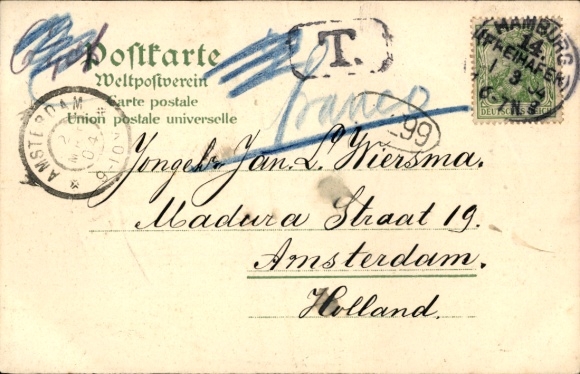 Postkarte
Weltpostverein
Carte postale
Union postale universelle
T.
franco
HAMBURG
14
(FREIHAFEN)
1 3 04
DEUTSCHES REICH
AMSTERDAM
04
99
Jongehr. Jan. L. Wiersma.
Madura Straat 19.
Amsterdam.
Holland.